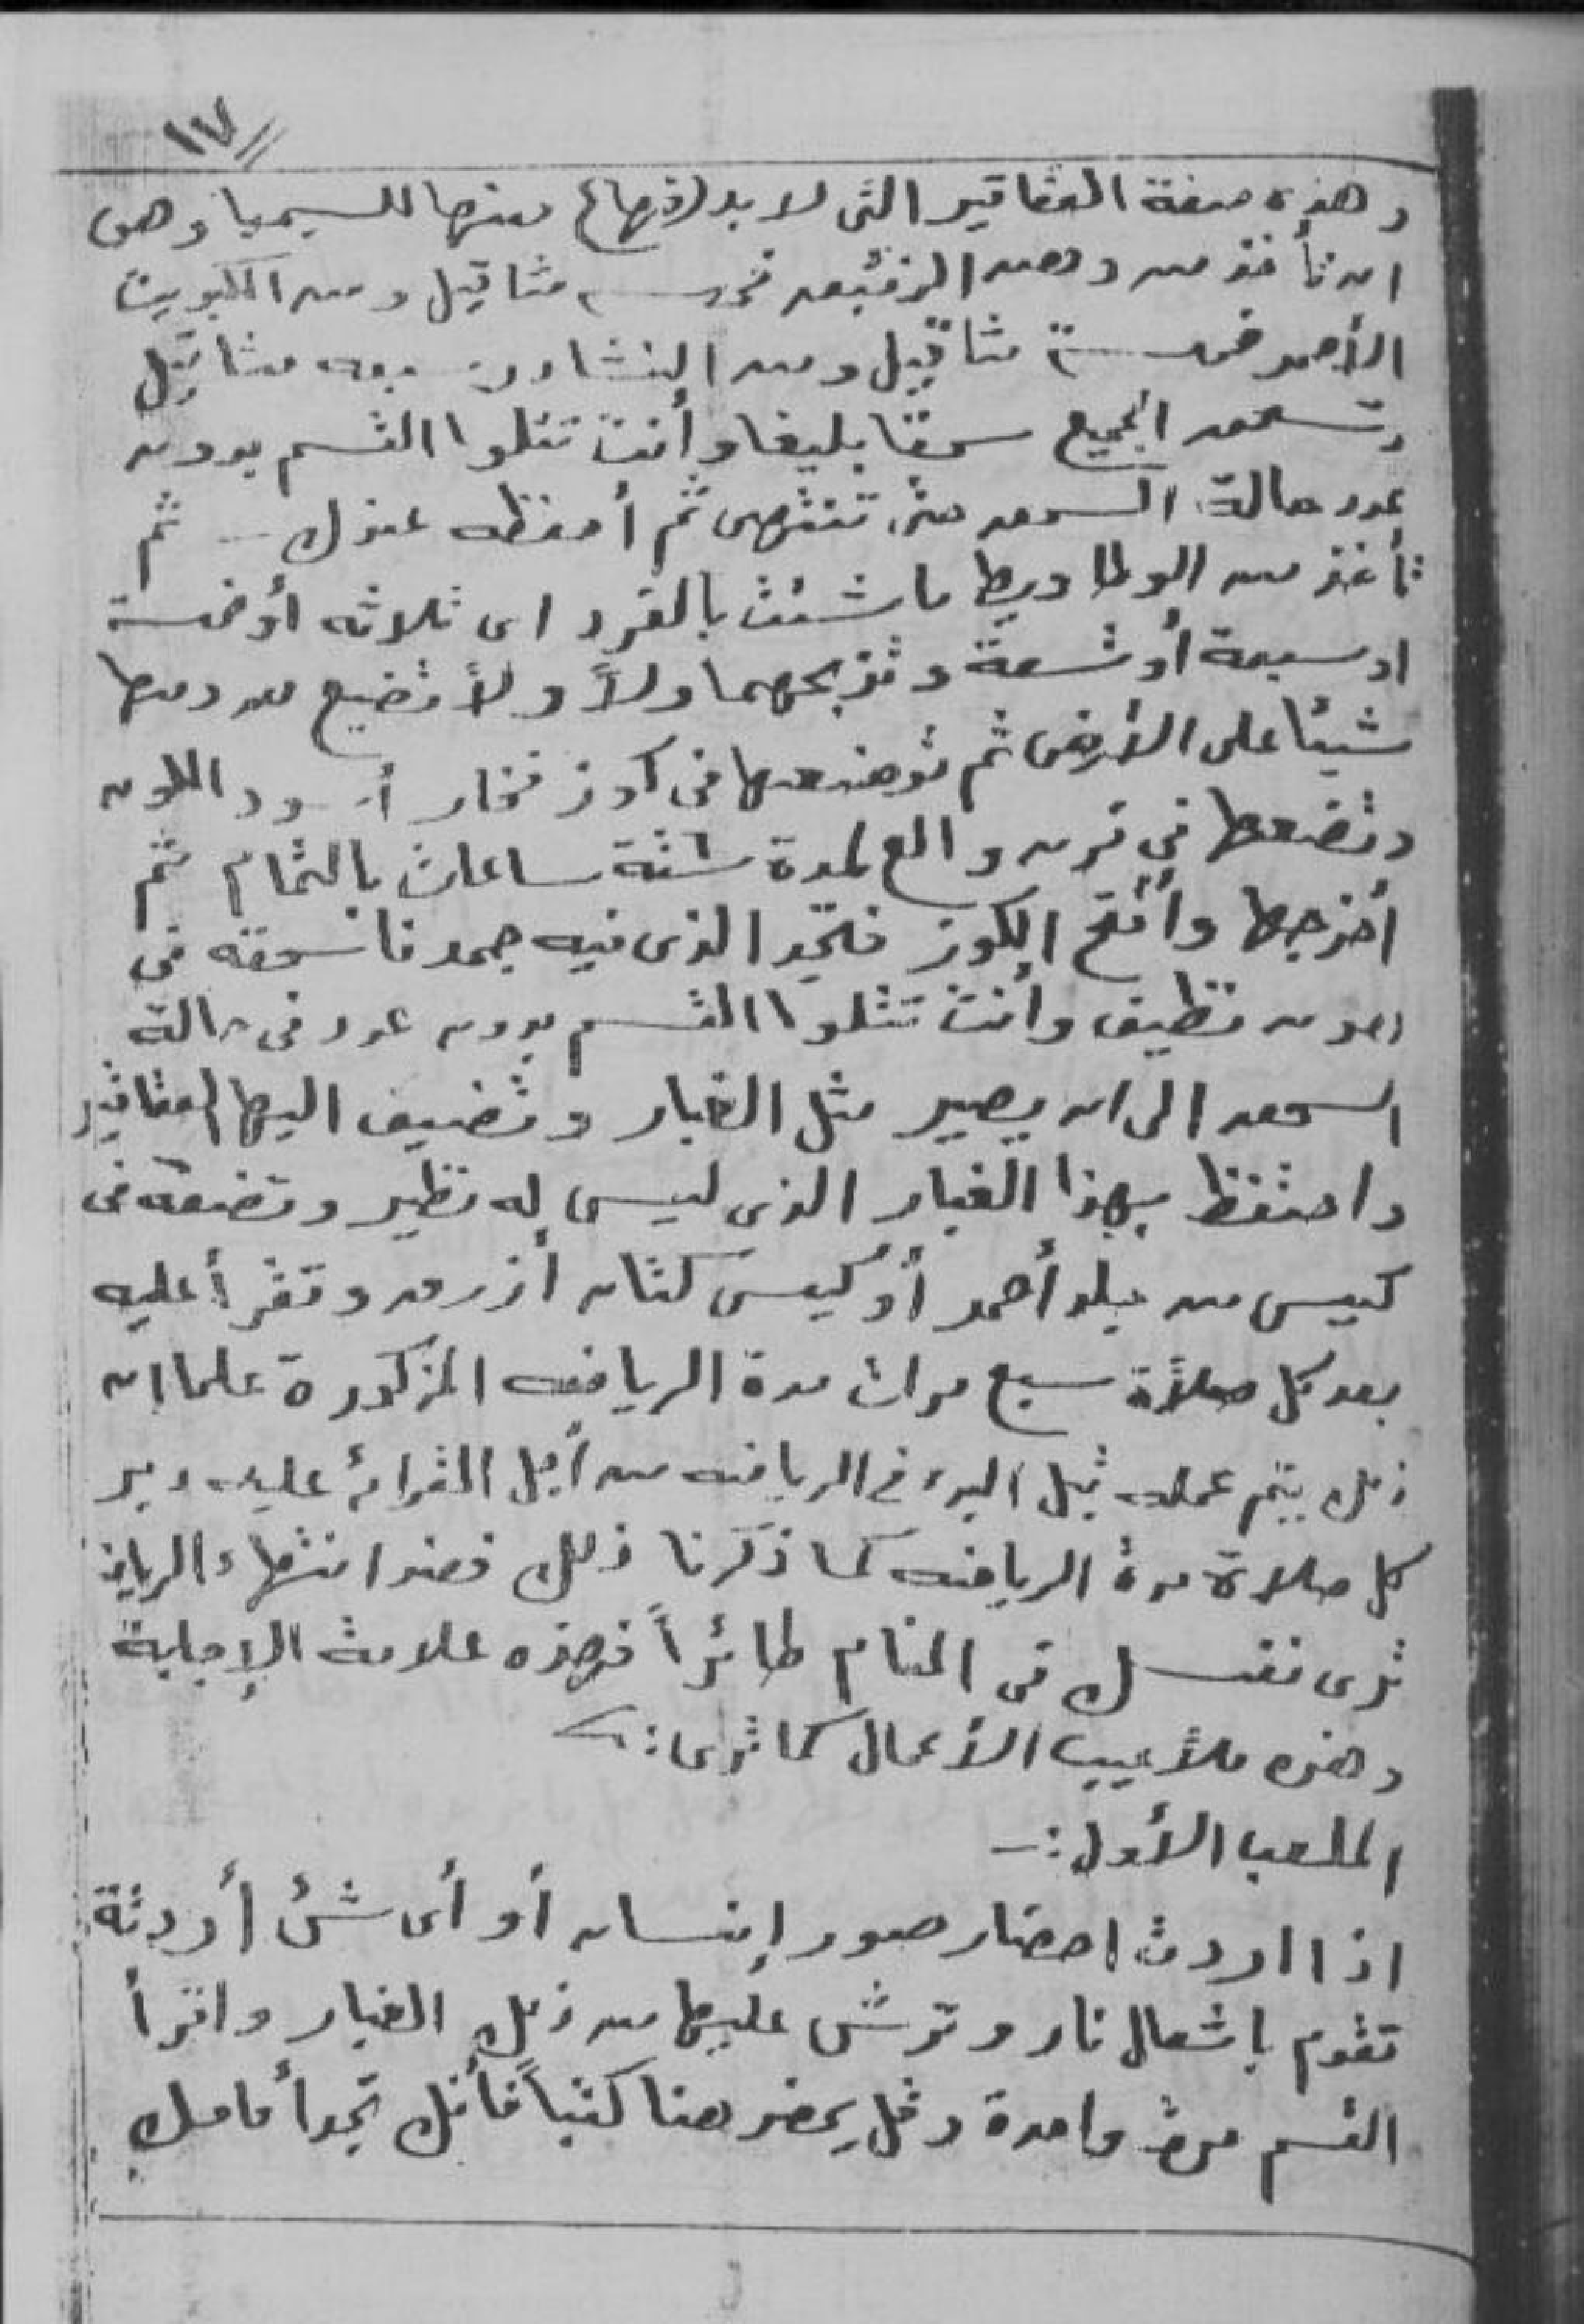 ١٧
وهذه صفة العقاقير التى لا بد منها للسيميا وهى
ان تأخذ من دهن الزئبق خمس مثاقيل ومن الكبريت
الأحمر خمسة مثاقيل ومن النشادر سبعه مثاقيل
وتسحق الجميع سحقا بليغا وأنت تتلوا القسم بدون
عدد حالة السحق حتى تنتهى ثم أحفظه عندك ثم
تأخذ من الوطاويط ما شئت بالفرد اى ثلاثه أو خمسة
او سبعة أو تسعة وتذبحهما ولاً ولاً تضيع من دمها
شيئا على الأرض ثم توضعها فى كوز فخار أسود اللون
وتضعها في فرن والع لمدة ستة ساعات بالتمام ثم
أخرجها وأفتح الكوز فتجد الذى فيه جمد فاسحقه فى
هون نظيف وأنت تتلوا القسم بدون عدد فى حالة
السحق الى ان يصير مثل الغبار وتضيف اليها العقاقير
واحتفظ بهذا الغبار الذى ليس له نظير وتضعه فى
كيس من جلد أحمر أو كيس كتان أزرق وتقرأ عليه
بعد كل صلاًة سبع مرات مدة الرياضه المذكورة علما ان
ذلك يتم عمله قبل البدء في الرياضه من أجل القرائه عليه دبر
كل صلاة مدة الرياضه كما ذكرنا ذلك فعند انتهاء الرياضه
ترى نفسك فى المنام طائراً فهذه علامة الإجابة
وهذه ملاًعيب الأعمال كما ترى :
الملعب الأول :-
اذا اردت احضار صور إنسان أو أى شئ أردتة
تقوم باشعال نار وترش عليها من ذلك الغبار واقرأ
القسم مرة واحدة وقل يحضر هنا كتباً فأنك تجد أمامك